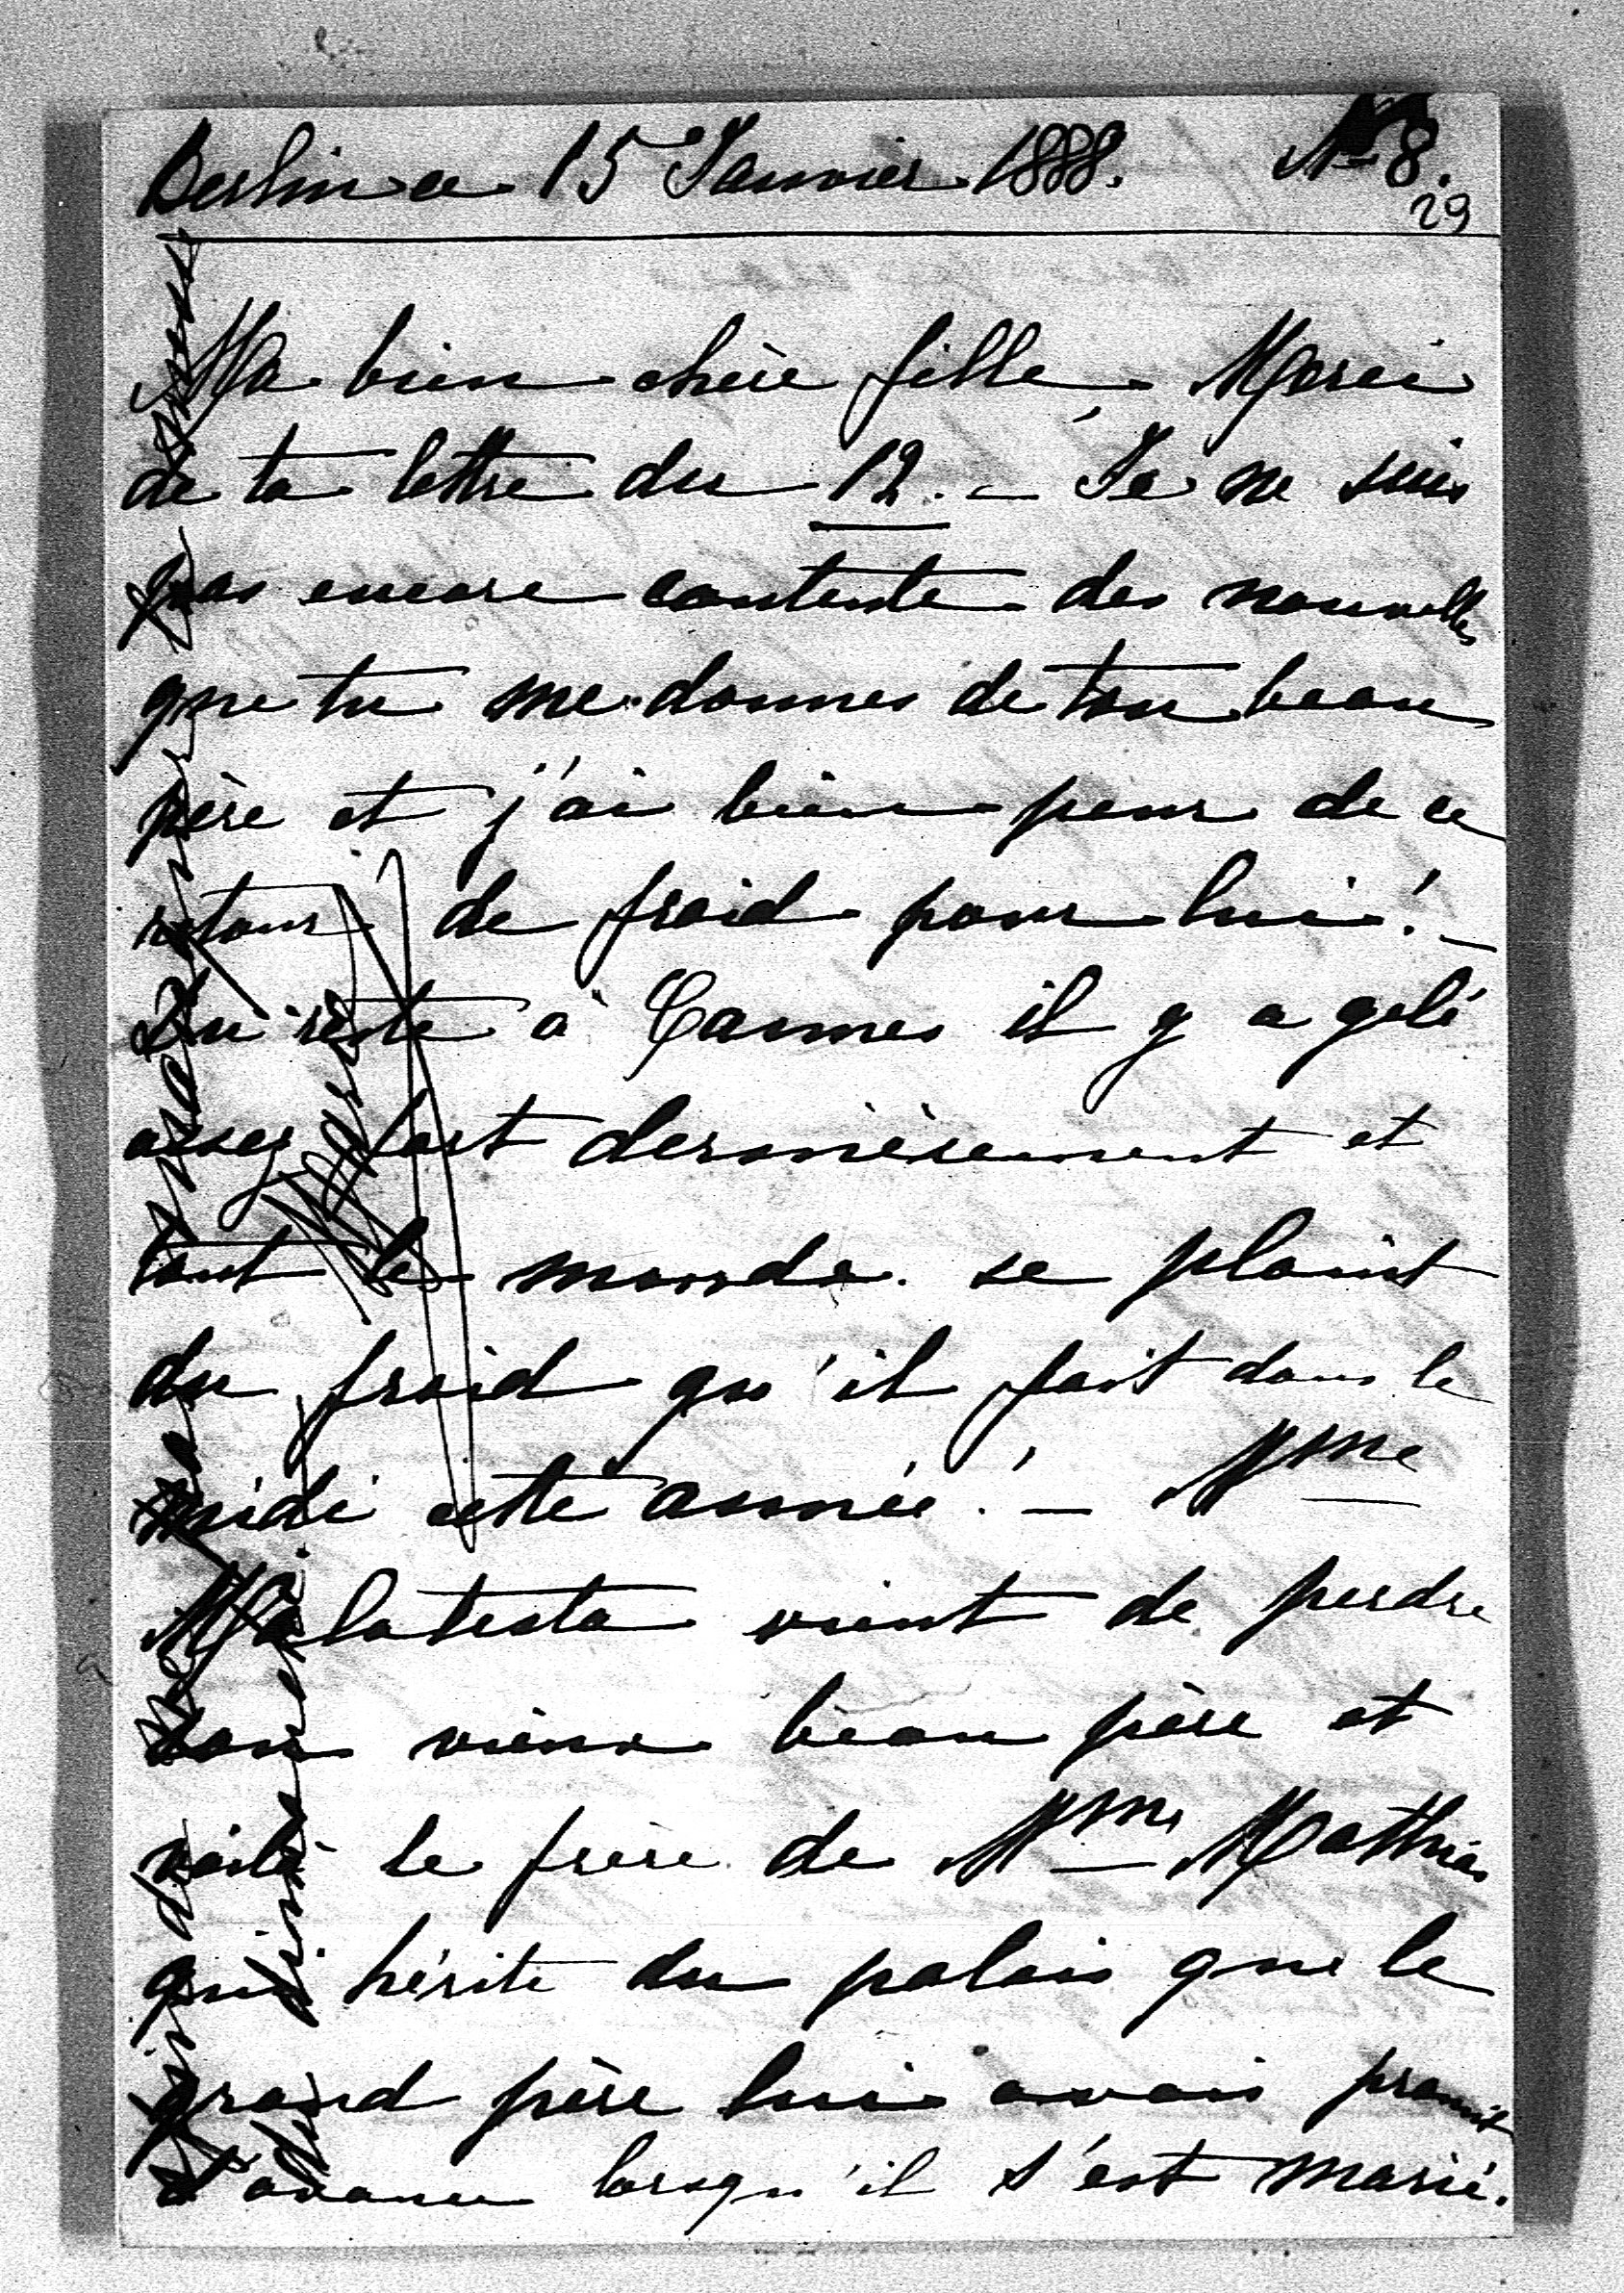 Berlin ce 15 Janvier 1888. N 8.
29
Ma bien chère fille. Merci
de ta lettre du 12. — Je ne suis
pas encore contente des nouvelles
que tu me donnes de ton beau
père et j'ai bien peur de ce
retour de froid pour lui! —
Du reste à Cannes il y a gelé
assez fort dernièrement et
tout le monde se plaint
du froid qu'il fait dans le
midi cette année! — Mme
Malatesta vient de perdre
son vieux beau père et
voilà le frère de Mme Mathias
qui hérite du palais que le
grand père lui avais promit
d'avance lorsqu'il s'est marié.